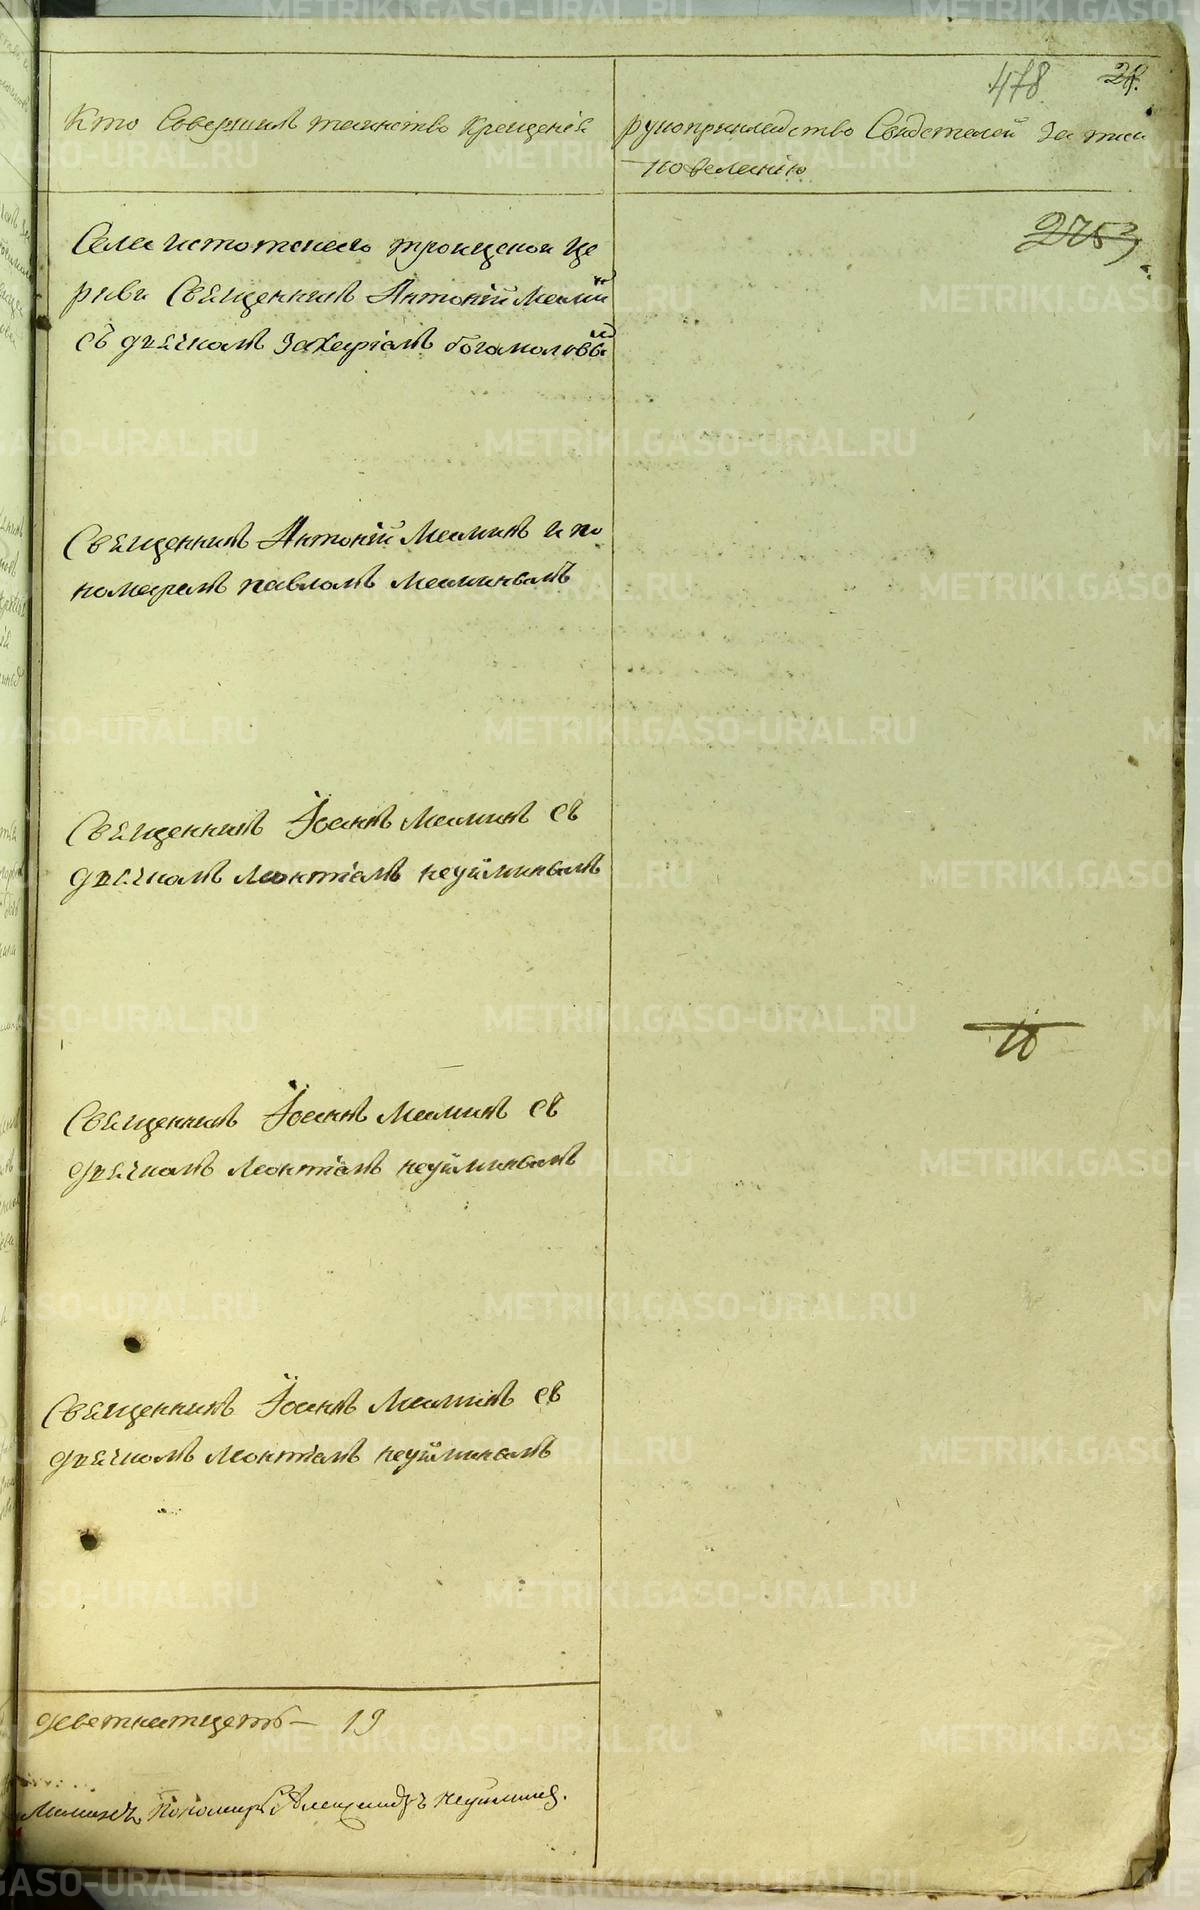 478 28.
Кто Совершилъ таинство Крещенія
рукоприкладство Свидетелей За тми
повеленію
2753
Села истотскаго троицской це
ркви Священникъ Антоній Маминъ
съ дьячкомъ Захаріамъ богомоловы
Священникъ Антоній Маминъ и по
номарамъ павломъ Маминымъ
Священникъ Іоаннъ Маминъ съ
дьячкомъ Леонтіамъ неуйминымъ
Священникъ Іоаннъ Маминъ съ
дьячкомъ Леонтіамъ неуйминымъ
Священникъ Іоаннъ Маминъ съ
дьячкомъ Леонтіамъ неуйминымъ
деветнатцеть — 19
Маминъ Пономарь Александръ неуйминъ.
METRIKI.GASO-URAL.RU